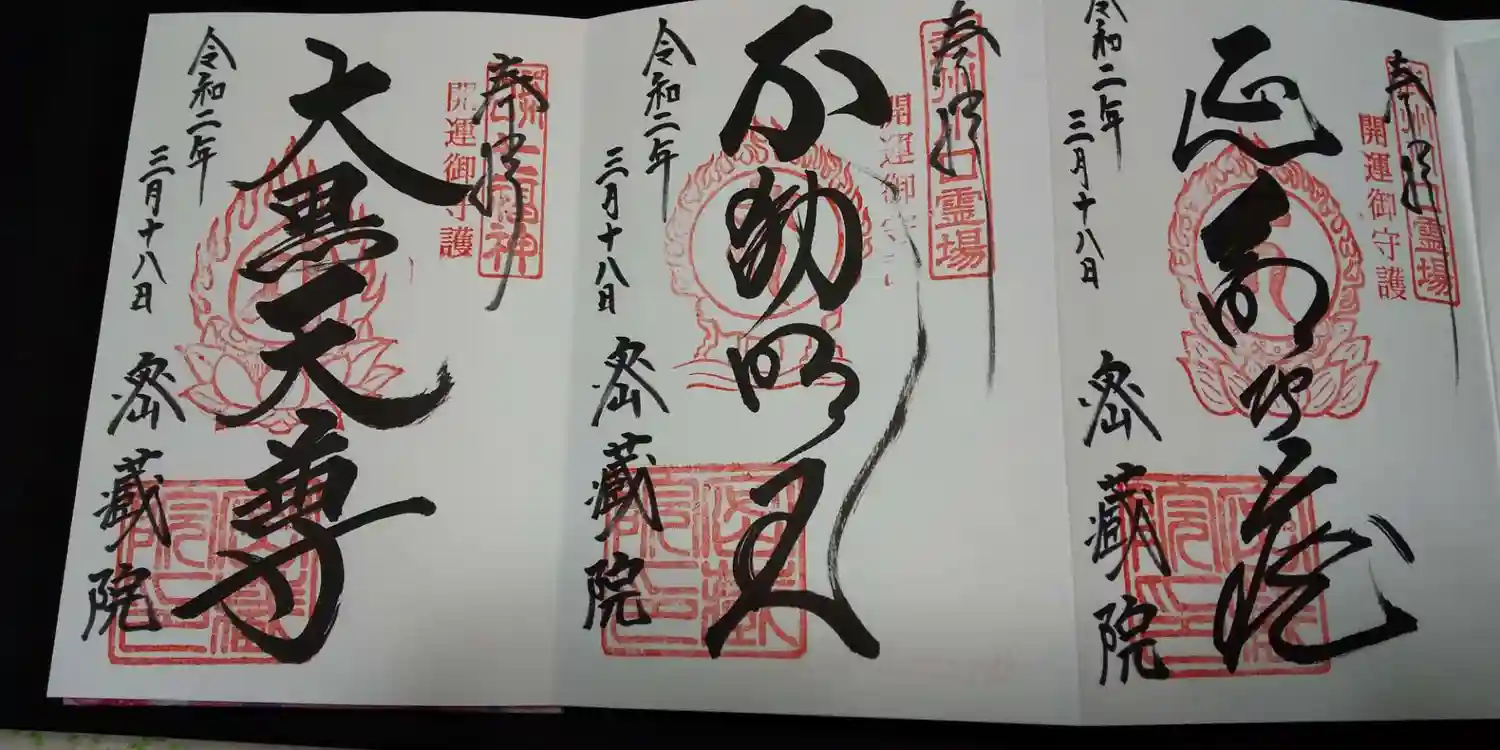 奉拝
霊場
開運御守護
延命地蔵
令和二年
三月十八日
密蔵院
奉拝
川口霊場
開運御守
不動明王
令和二年
三月十八日
密蔵院
奉拝
七福神
開運御守護
大黒天尊
令和二年
三月十八日
密蔵院